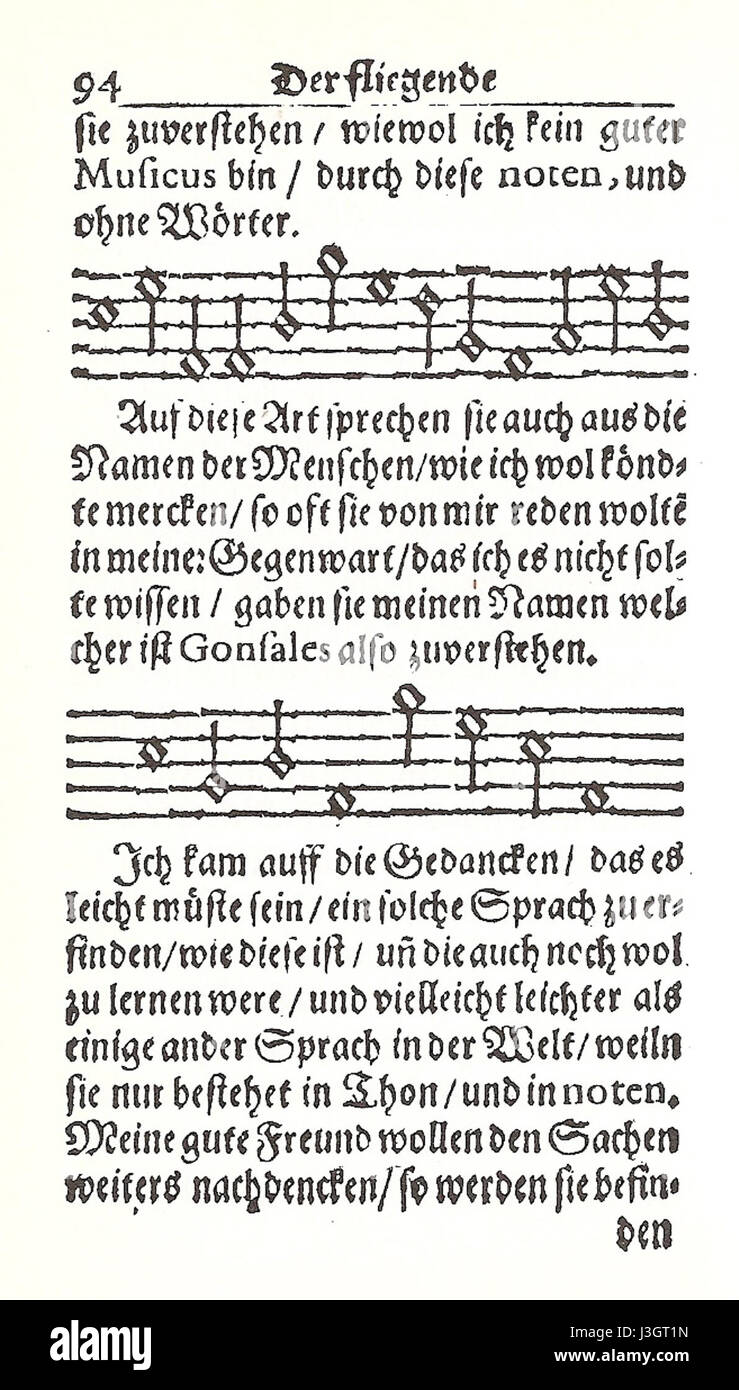 94 Der fliegende
sie zuverstehen / wiewol ich kein guter
Musicus bin / durch diese noten, und
ohne Wörter.
Auf diese Art sprechen sie auch aus die
Namen der Menschen/wie ich wol könd⸗
te mercken/ so oft sie von mir reden woltē
in meiner Gegenwart/das ich es nicht sol⸗
te wissen / gaben sie meinen Namen wel⸗
cher ist Gonsales also zuverstehen.
Ich kam auff die Gedancken/ das es
leicht müste sein/ein solche Sprach zu er⸗
finden/wie diese ist/ uñ die auch noch wol
zu lernen were/und vielleicht leichter als
einige ander Sprach in der Welt/weiln
sie nur bestehet in Thon/und in noten.
Meine gute Freund wollen den Sachen
weiters nachdencken/so werden sie befin⸗
den
a alamy stock photo
J3GT1N
www.alamy.com